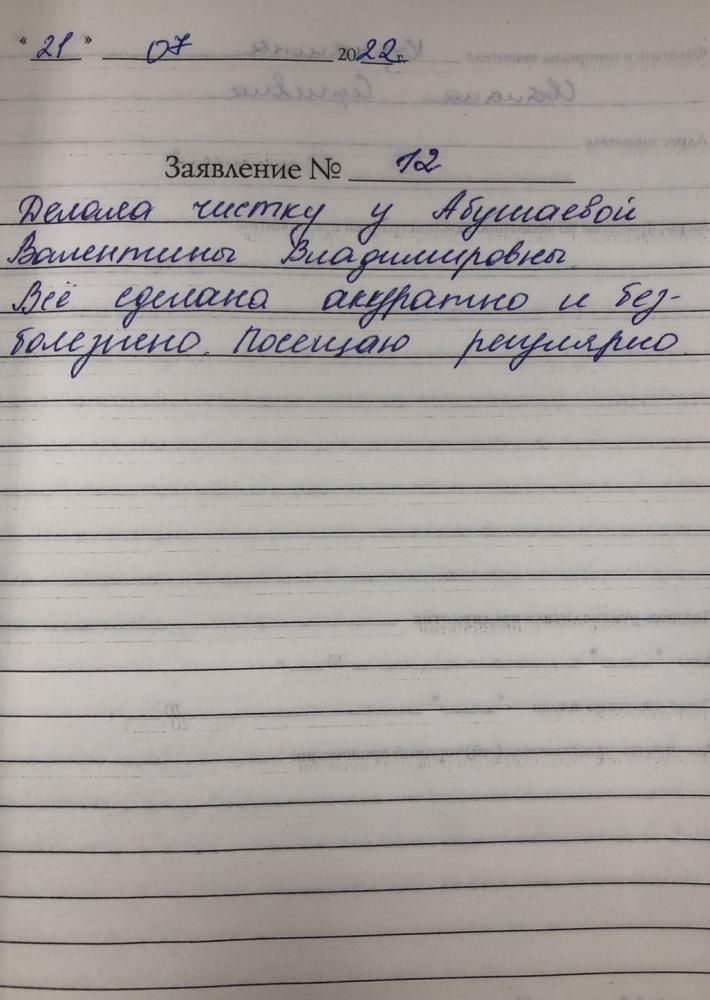 «21» 07 2022 г.
Заявление № 12
Делала чистку у Абушаевой
Валентины Владимировны.
Всё сделана аккуратно и без-
болезнено. Посещаю регулярно.